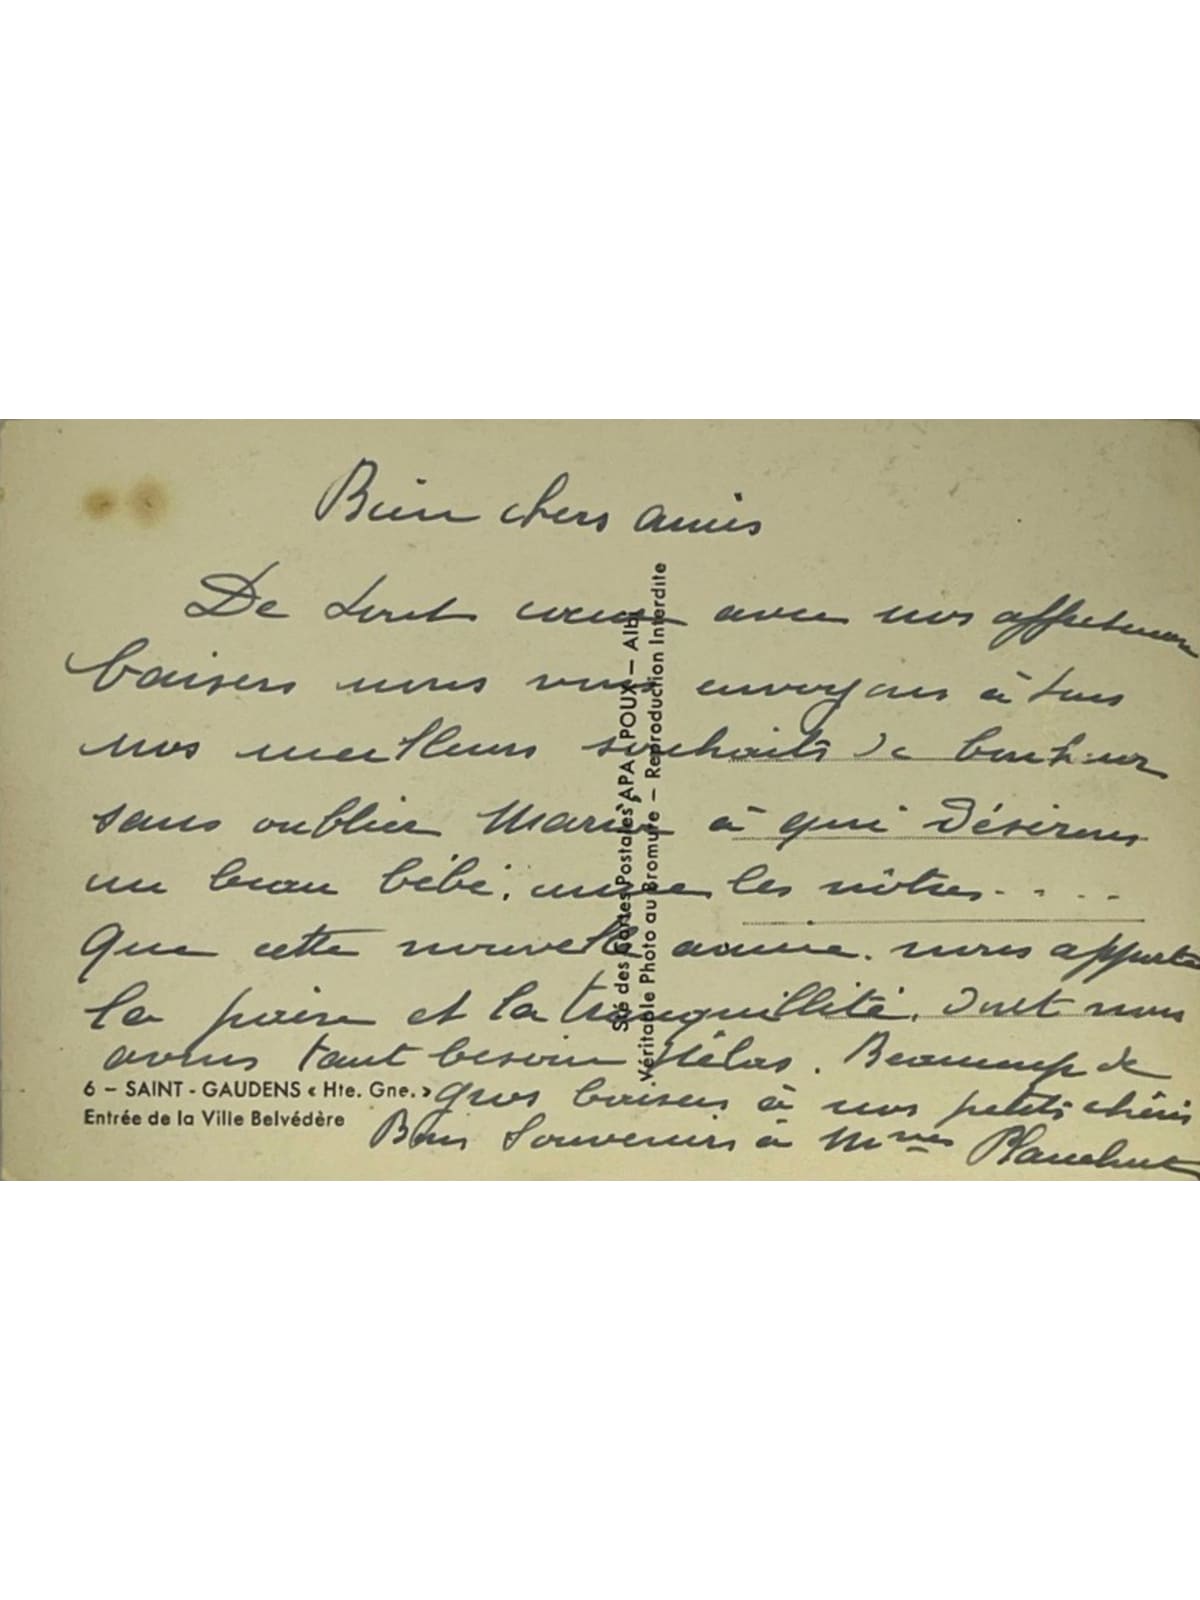 Bien chers amis
De tout coeur avec nos affectueux
baisers nous vous envoyons à tous
nos meilleurs souhaits de bonheur
sans oublier à qui désirons
un beau bébé, comme les nôtres - . . .
Que cette nouvelle année. nous apporte
la paix et la tranquillité, dont nous
avons tant besoin Hélas. Beaucoup de
gros baisers à nos petits chéris
Bons Souvenirs à Mmes
6 - SAINT - GAUDENS « Hte. Gne. »
Entrée de la Ville Belvédère
Sté des Cartes Postales APA POUX - Albi
Véritable Photo au Bromure - Reproduction Interdite